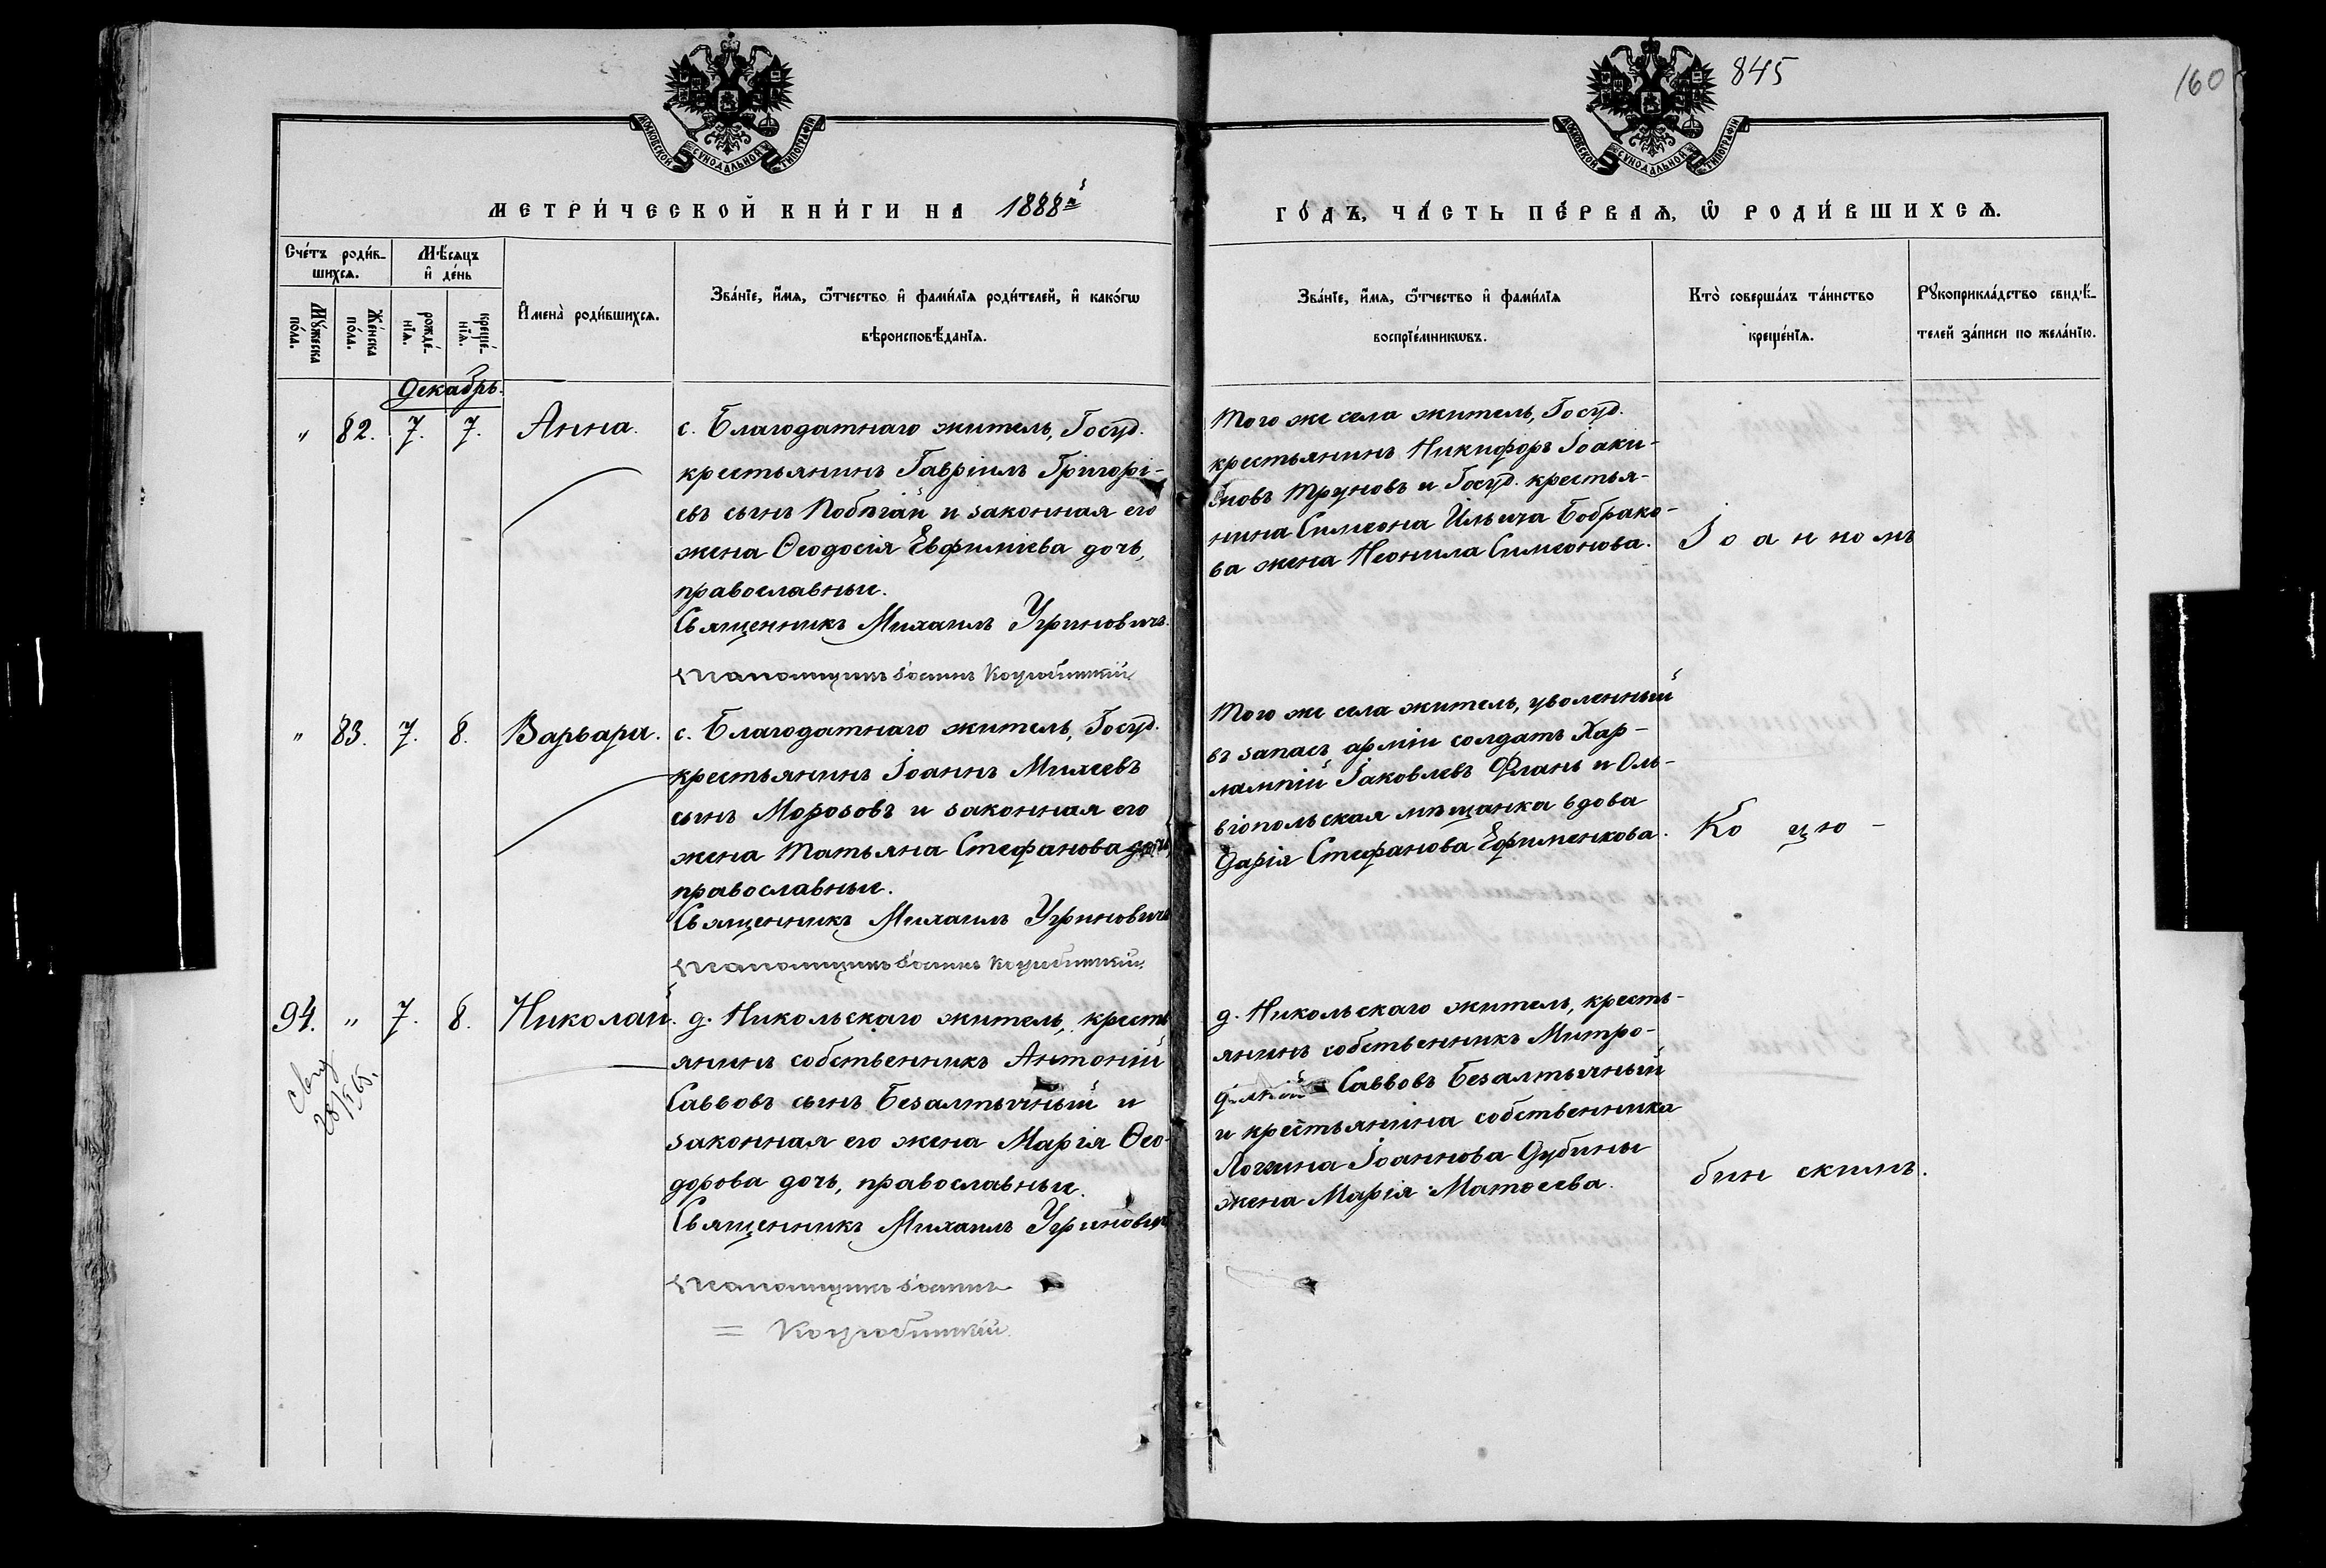 845
160
МОСКОВСКОЙ СѴНОДАЛЬНОЙ ТИПОГРАФІИ
МОСКОВСКОЙ СѴНОДАЛЬНОЙ ТИПОГРАФІИ
МЕТРИ́ЧЕСКОЙ КНИ́ГИ НА 1888й
ГО́ДЪ, ЧА́СТЬ ПЕ́РВАѦ, Ѿ РОДИ́ВШИХСѦ.
Сче́тъ роди́в-
шихсѧ.
Мѣ́сѧцъ
и҆ де́нь
Мꙋ́жеска
по́ла.
Же́нска
по́ла.
рожде́-
нїѧ.
креще́-
нїѧ.
И҆мена̀ роди́вшихсѧ.
Зва́нїе, и҆́мѧ, ѻ҆́тчество и҆ фами́лїѧ роди́телей, и҆ како́гѡ
вѣроисповѣ́данїѧ.
Зва́нїе, и҆́мѧ, ѻ҆́тчество и҆ фами́лїѧ
воспрїе́мникѡвъ.
Кто̀ соверша́лъ та́инство
креще́нїѧ.
Рꙋкоприкла́дство свидѣ́-
телей за́писи по жела́нїю.
Декабрь.
" 82. 7. 7. Анна.
с. Благодатнаго житель, Госуд.
крестьянинъ Гавріилъ Григорі-
евъ сынъ Побѣгай и законная его
жена Ѳеодосія Евфиміева дочь,
православные.
Священникъ Михаилъ Угриновичъ.
Псаломщикъ Іоаннъ Коцюбинскій
Того же села житель, Госуд.
крестьянинъ Никифоръ Іоаки-
мовъ Труновъ и Госуд. крестья-
нина Симеона Ильича Бобрако-
ва жена Неонила Симеонова.
Іоанномъ
" 83. 7. 8. Варвара.
с. Благодатнаго житель, Госуд.
крестьянинъ Іоаннъ Михеевъ
сынъ Морозовъ и законная его
жена Татьяна Стефанова дочь,
православные.
Священникъ Михаилъ Угриновичъ
Псаломщикъ Іоаннъ Коцюбинскій
Того же села житель, уволенный
въ запасъ арміи солдатъ Хар-
лампій Іаковлевъ Флань и Оль-
віопольская мѣщанка вдова
Дарія Стефанова Ефименкова.
Коцю-
94. " 7. 8. Николай.
28/
д. Никольскаго житель, кресть
янинъ собственникъ Антоній
Саввовъ сынъ Безалтычный и
законная его жена Марія Ѳео-
дорова дочь, православные.
Священникъ Михаилъ Угриновичъ
Псаломщикъ Іоаннъ
= Коцюбинскій.
д. Никольскаго житель, кресть-
янинъ собственникъ Митро-
Саввовъ Безалтычный
и крестьянина собственника
Логгина Іоаннова Дубины
жена Марія Матѳеева.
бинскимъ.